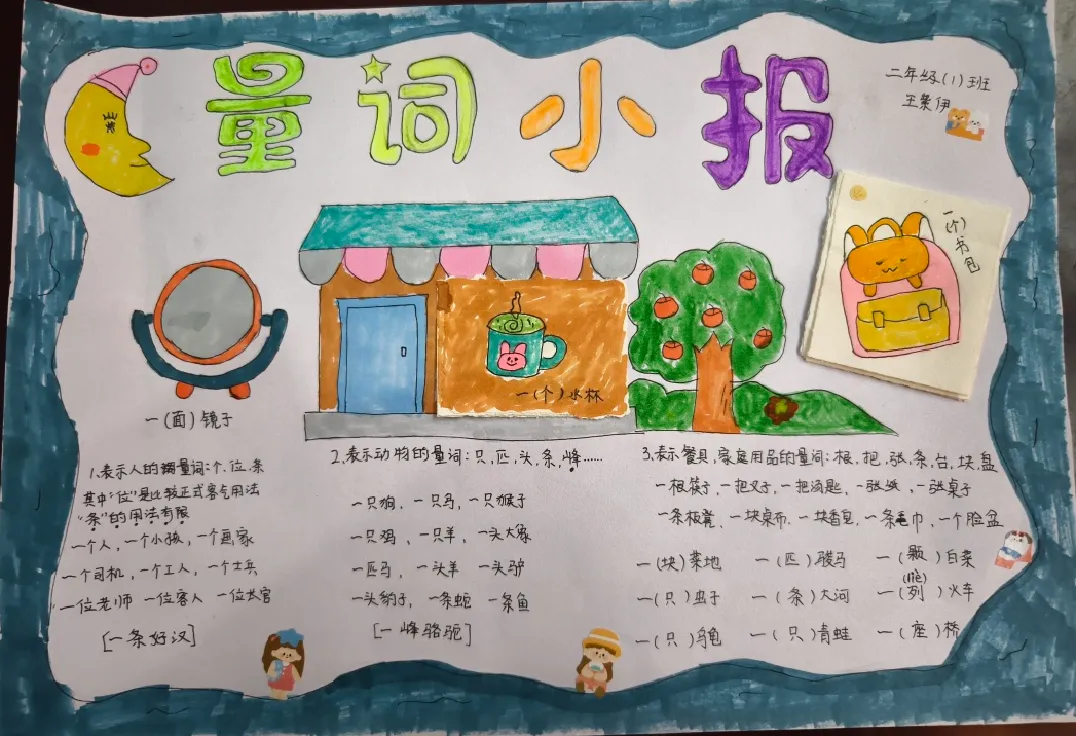 量词小报
二年级(1)班
王景伊
一(个)书包
一(个)水杯
一(面)镜子
1.表示人的量词:个.位.条
其中"位"是比较正式客气用法
"条"的用法有限
一个人,一个小孩,一个画家
一个司机,一个工人,一个士兵
一位老师 一位客人 一位长官
[一条好汉]
2.表示动物的量词:只.匹.头.条.峰……
一只狗,一只鸟,一只猴子
一只鸡,一只羊,一头大象
一匹马,一头羊 一头驴
一头豹子,一条蛇 一条鱼
[一峰骆驼]
3.表示餐具,家庭用品的量词:根.把.张.条.台.块.盘
一根筷子,一把叉子,一把汤匙,一张纸,一张桌子
一条板凳,一块桌布,一块香皂,一条毛巾,一个脸盆
一(块)菜地 一(匹)骏马 一(颗)白菜
一(只)虫子 一(条)大河 一(列)火车
一(只)乌龟 一(只)青蛙 一(座)桥